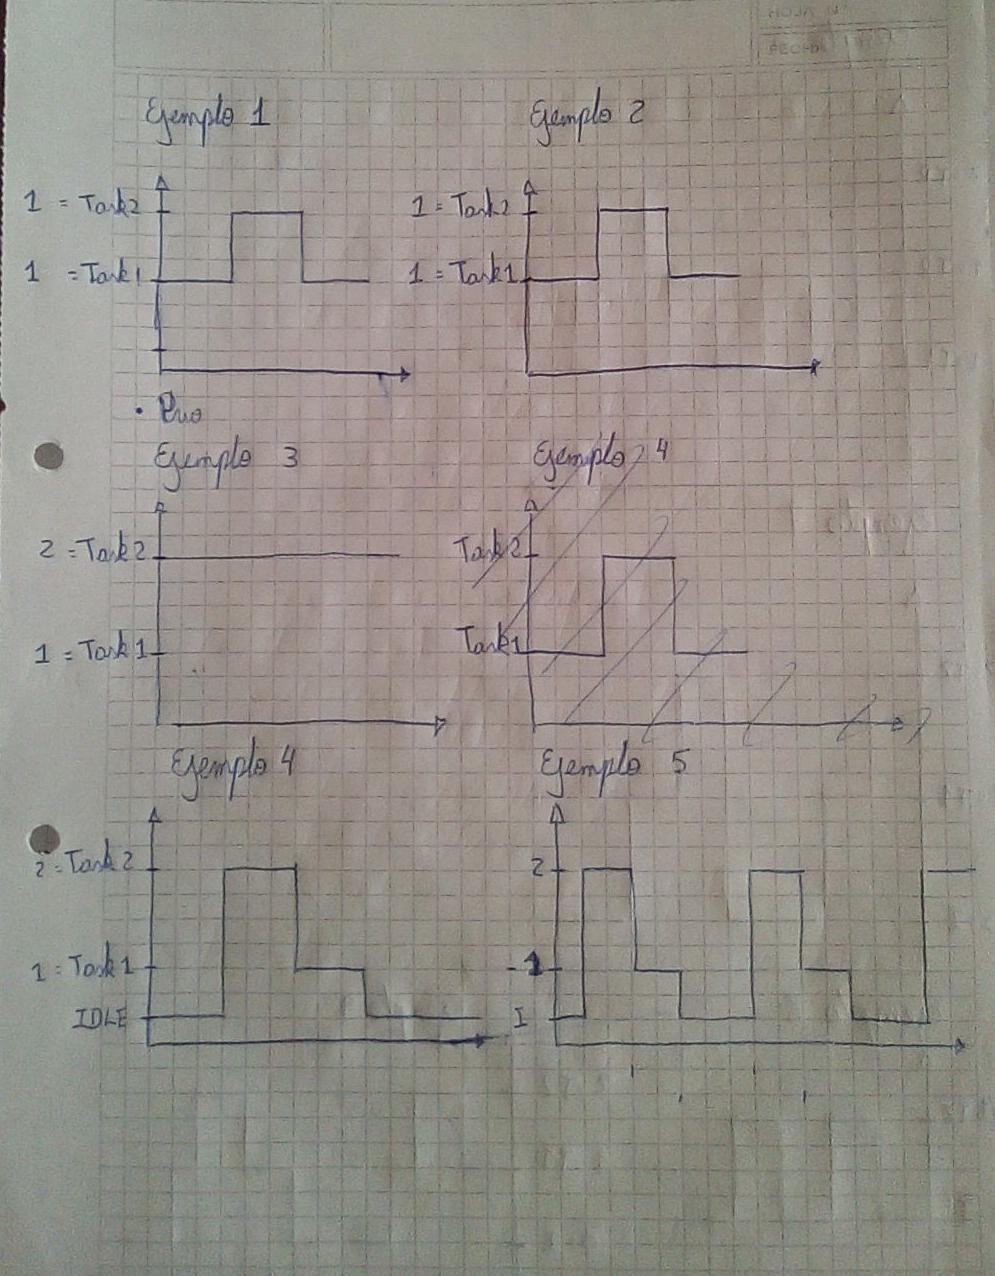 Ejemplo 1
1 = Task2
1 = Task1
Ejemplo 2
1 = Task2
1 = Task1
Ejemplo 3
2 = Task2
1 = Task1
Ejemplo 4
Task2
Task1
Ejemplo 4
2 = Task2
1 = Task1
IDLE
Ejemplo 5
2
1
I